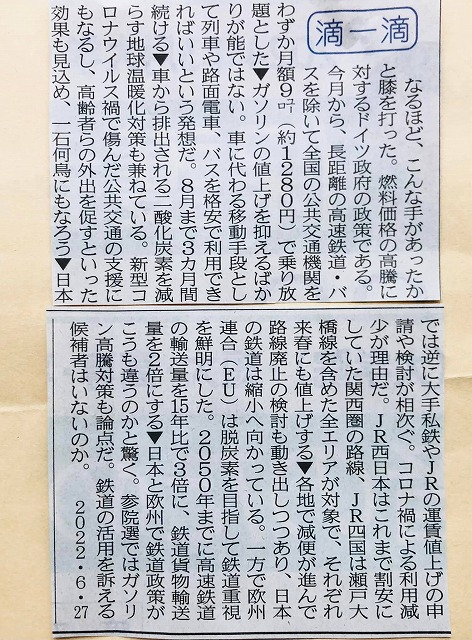 滴一滴
なるほど、こんな手があったか
と膝を打った。燃料価格の高騰に
対するドイツ政府の政策である。
今月から、長距離の高速鉄道・バ
スを除いて全国の公共交通機関を
わずか月額9㍐（約1280円）で乗り放
題とした▼ガソリンの値上げを抑えるばか
りが能ではない。車に代わる移動手段とし
て列車や路面電車、バスを格安で利用でき
ればいいという発想だ。8月まで3カ月間
続ける▼車から排出される二酸化炭素を減
らす地球温暖化対策も兼ねている。新型コ
ロナウイルス禍で傷んだ公共交通の支援に
もなるし、高齢者らの外出を促すといった
効果も見込め、一石何鳥にもなろう▼日本
では逆に大手私鉄やJRの運賃値上げの申
請や検討が相次ぐ。コロナ禍による利用減
少が理由だ。JR西日本はこれまで割安に
していた関西圏の路線、JR四国は瀬戸大
橋線を含めた全エリアが対象で、それぞれ
来春にも値上げする▼各地で減便が進んで
路線廃止の検討も動き出しつつあり、日本
の鉄道は縮小へ向かっている。一方で欧州
連合（EU）は脱炭素を目指して鉄道重視
を鮮明にした。2050年までに高速鉄道
の輸送量を15年比で3倍に、鉄道貨物輸送
量を2倍にする▼日本と欧州で鉄道政策が
こうも違うのかと驚く。参院選ではガソリ
ン高騰対策も論点だ。鉄道の活用を訴える
候補者はいないのか。　2022・6・27